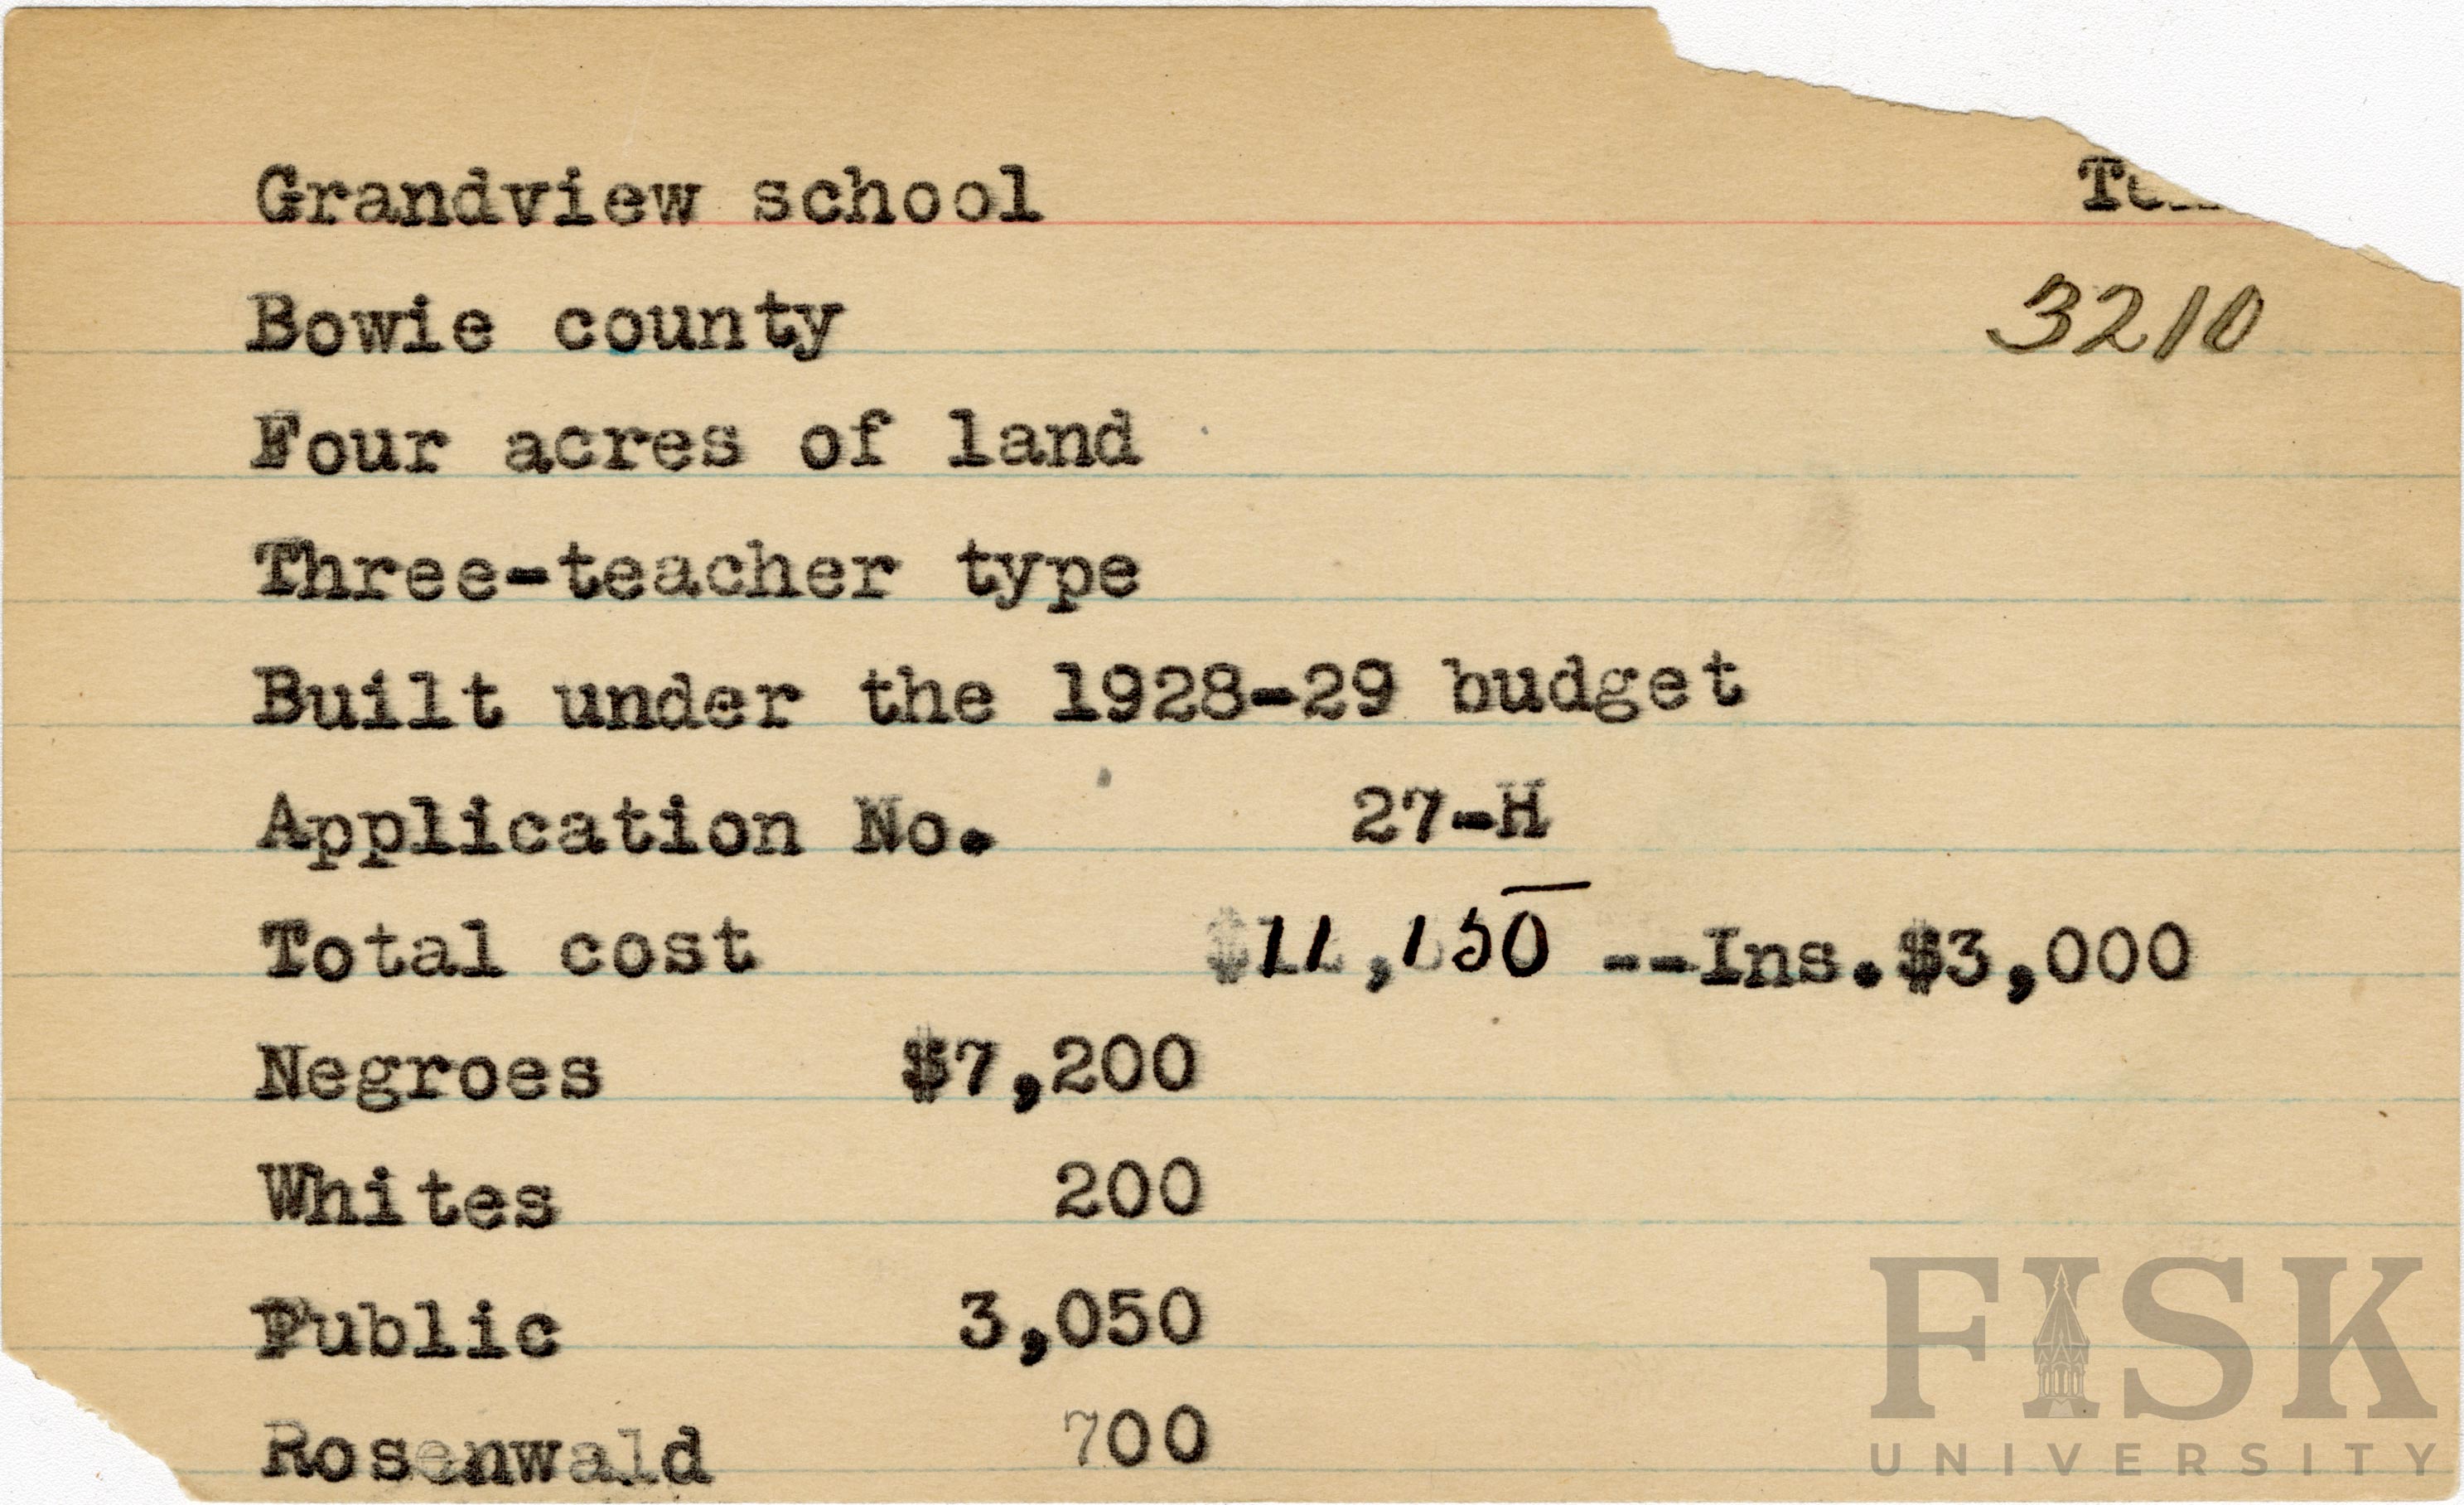 Grandview school
3210
Bowie county
Four acres of land
Three-teacher type
Built under the 1928-29 budget
Application No. 27-H
Total cost $11,150 --Ins.$3,000
Negroes $7,200
Whites 200
Public 3,050
Rosenwald 700
FISK
UNIVERSITY